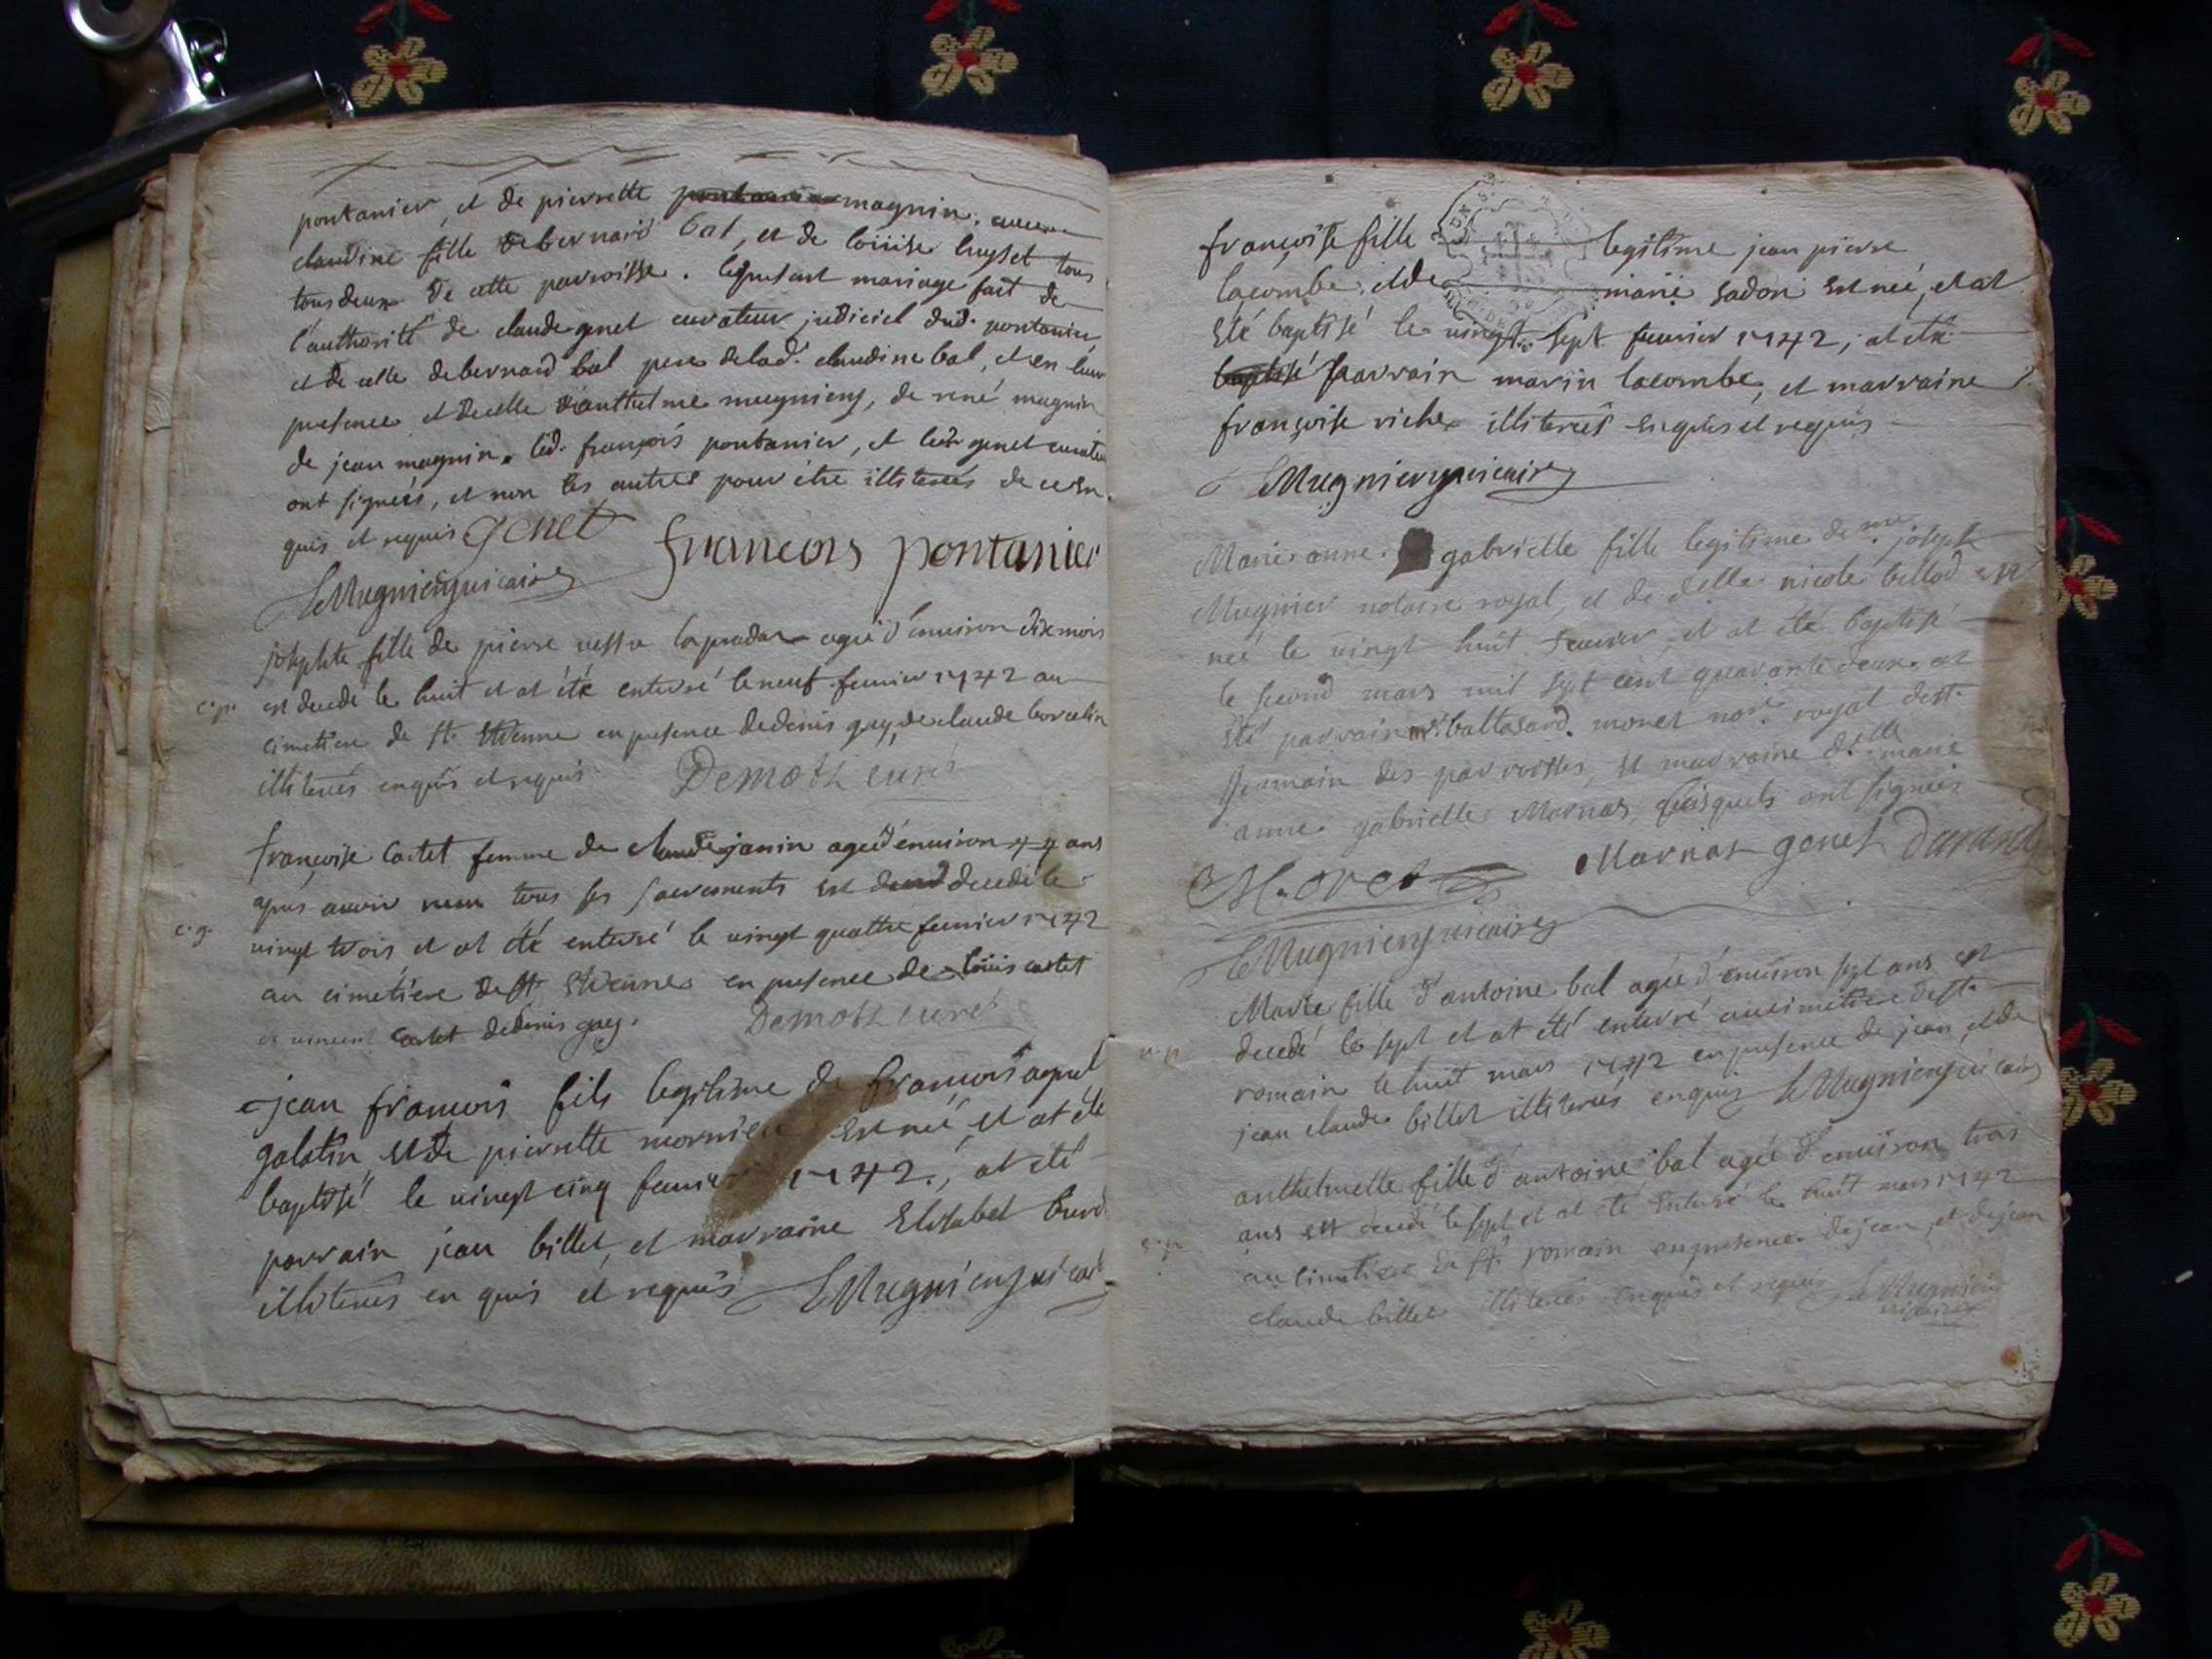 pontanier, et de pierrette magnin.
claudine fille de bernard bal, et de loüise huyset tous
tous deux de cette parroisse. le present mariage fait de
l'authorité de claude genet curateur judiciel dud. pontanier
et de celle de bernard bal pere de lad. claudine bal, et en leur
presence et de celle d'anthelme mugniery, de rené magnin
de jean magnin. led. françois pontanier, et led. genet curateur
ont signéés, et non les autres pour étre illiterés de ce en
quis et requis genet françois pontanier
Mugniery vicaire
josephte fille de pierre agée d'enuiron dix mois
c. p. est decedé le huit et at été enterré le neuf feurier 1742 au
cimetiere de st. Etienne en presence de denis guy, de claude borcelin
illiterés enquis et requis Demoth curé
françoise Castet femme de claude janin agéé d'enuiron 44 ans
apres auoir receu tous ses sacrements est decedé le
c. g. vingt trois et at été enterré le vingt quattre feurier 1742
au cimetiere de st. Etienne en presence de loüis castet
et vincent Castet de denis guy. Demoth curé
jean françois fils legitime de françois agnel
galatin, et de pierrette mornieu est né, et at été
baptisé le vingt cinq feurier 1742., at été
parrain jean billet, et marraine Elisabet
illiterés en quis et requis Mugniery vicaire
françoise fille legitime jean pierre
lacombe, et de marie sadon est néé, et at
Eté baptisé le vingt sept feurier 1742, at été
parrain marin lacombe, et marraine
françoise riche illiterés enquis et requis
Mugniery vicaire
Marie anne gabrielle fille legitime de me. joseph
Mugnier notaire royal, et de delle nicole bellod est
néé le vingt huit feurier et at été baptisé
le second mars mil sept cent quarante deux. at
Eté parrain mr. baltasard monet nore. royal de st.
germain des parroisses, et marraine delle marie
anne gabrielle Marnas, lesquels ont signéés
Monet Marnas genet Durand
Mugniery vicaire
Marie fille d'antoine bal agéé d'enuiron sept ans est
decedé le sept et at été enterré au cimetiere de st.
romain le huit mars 1742 en presence de jean, et de
jean claude billet illiterés enquis Mugniery vicaire
anthelmette fille d'antoine bal agéé d'enuiron trois
ans est decedé le sept et at été enterré le huit mars 1742
au cimetiere de st. romain en presence de jean, et de jean
claude billet illiterés enquis et requis Mugniery
vicaire